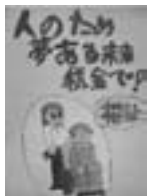 人のため
夢ある未来
税金で